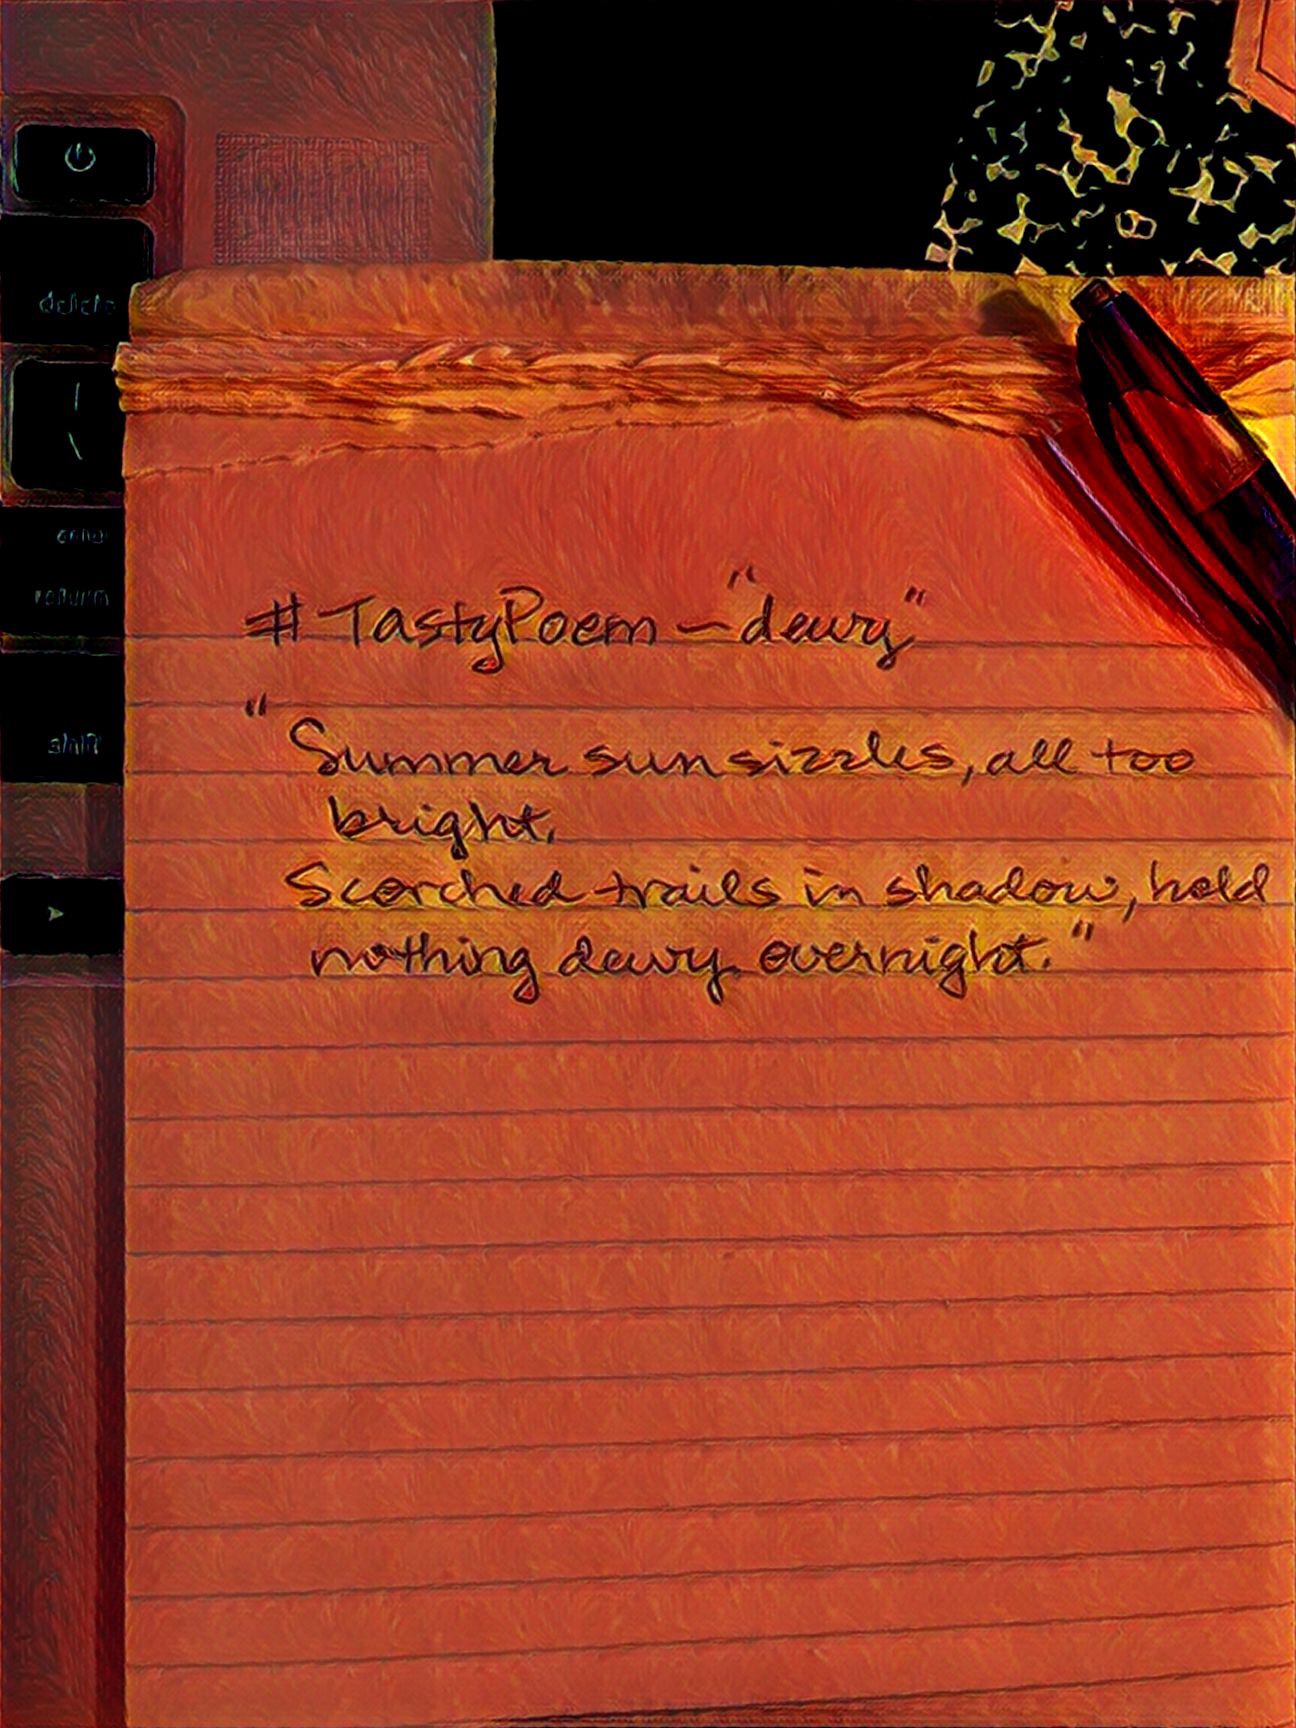 delete
|
\
enter
return
shift
#TastyPoem - "dewy"
"Summer sun sizzles, all too
bright,
Scorched trails in shadow, hold
nothing dewy overnight."